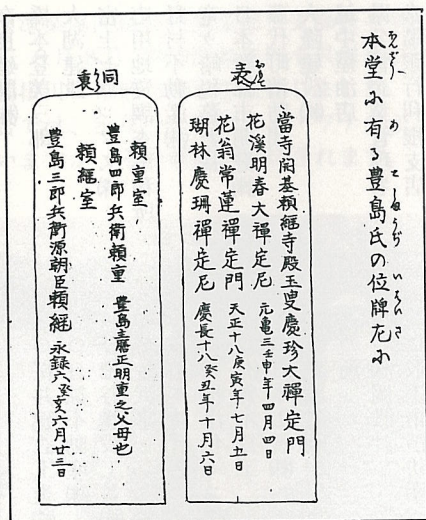 本堂に有る豊島氏の位牌左に
表
當寺開基頼継寺殿玉叟慶珍大禅定門
花溪明春大禅定尼 元亀三壬申年四月四日
花翁常蓮禅定門 天正十八庚寅年七月五日
瑚林慶珊禅定尼 慶長十八癸丑年十月六日
同裏
頼重室
豊島四郎兵衛頼重 豊島主膳正明重之父母也
頼継室
豊島三郎兵衛源朝臣頼継 永録六癸亥六月廿三日